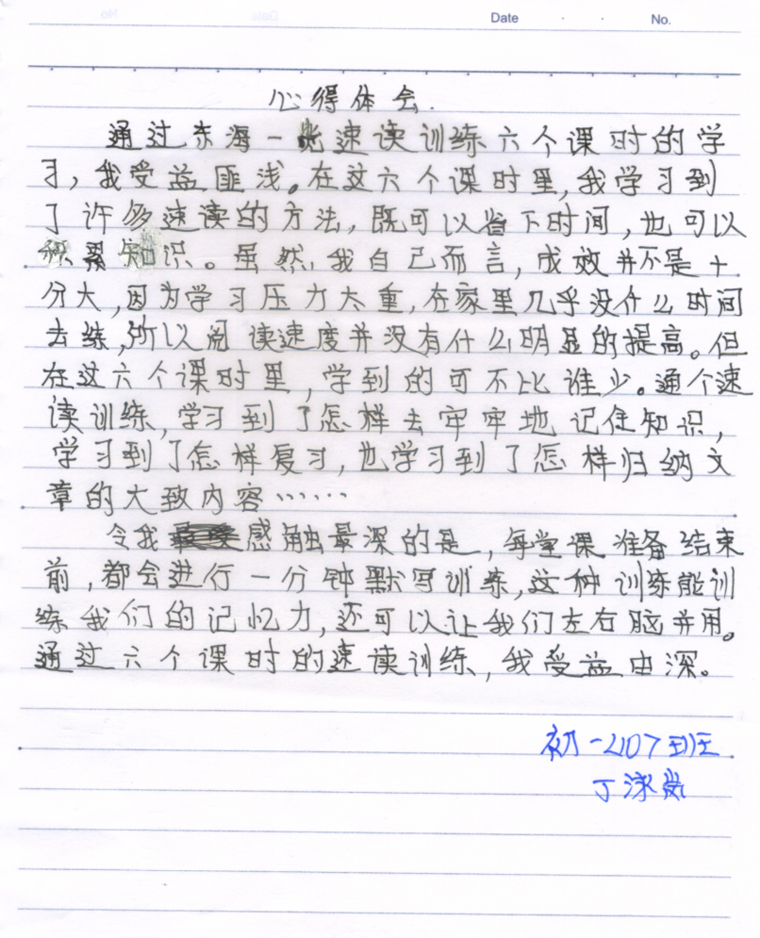 Date . . No.
心得体会.
通过东海一光速读训练六个课时的学
习，我受益匪浅。在这六个课时里，我学习到
了许多速读的方法，既可以省下时间，也可以
积累知识。虽然，我自己而言，成效并不是十
分大，因为学习压力太重，在家里几乎没什么时间
去练，所以阅读速度并没有什么明显的提高。但
在这六个课时里，学到的可不比谁少。通个速
读训练，学习到了怎样去牢牢地记住知识，
学习到了怎样复习，也学习到了怎样归纳文
章的大致内容……
令我感触最深的是，每堂课准备结束
前，都会进行一分钟默写训练，这种训练能训
练我们的记忆力，还可以让我们左右脑并用。
通过六个课时的速读训练，我受益由深。
初一〈10〉班
丁泳岚